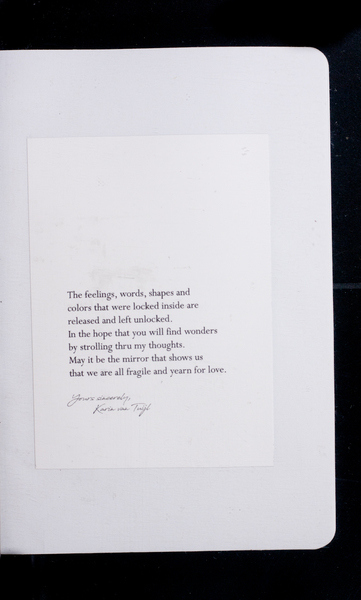 The feelings, words, shapes and
colors that were locked inside are
released and left unlocked.
In the hope that you will find wonders
by strolling thru my thoughts.
May it be the mirror that shows us
that we are all fragile and yearn for love.
Yours sincerely,
Karin van Tuijl